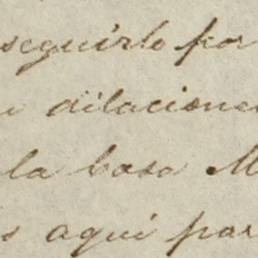 seguirlo por
dilaciones
la basa M
s aquí par